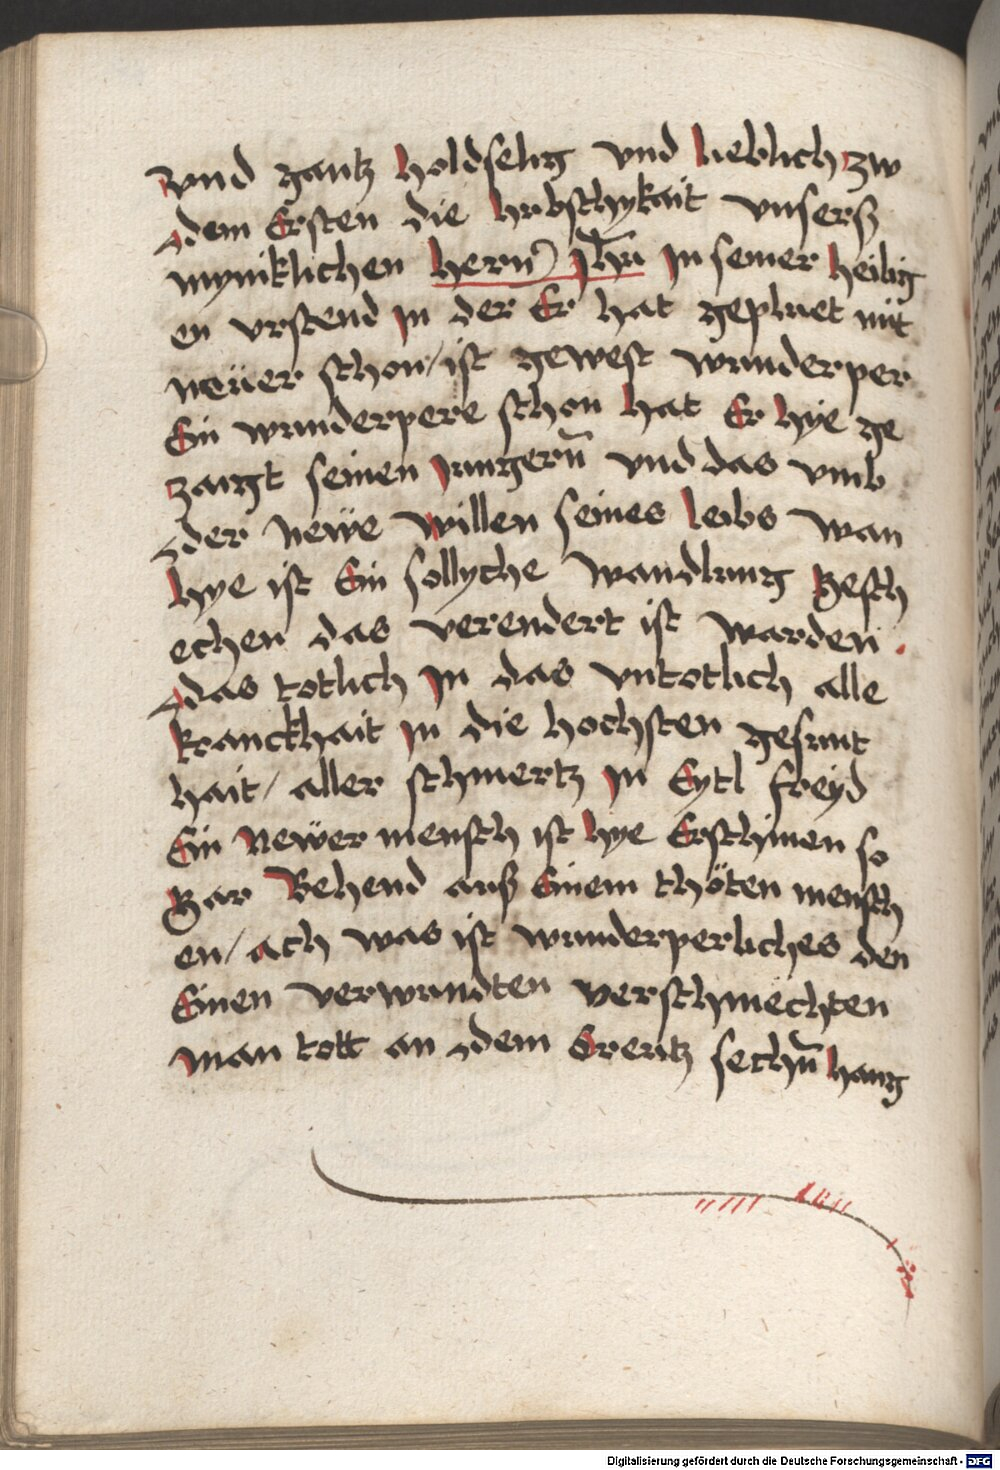 vnd gantz holdselig vnd lieblich zw
dem Ersten die hubschykait vnsers
myniklichen hern Jhu Jn seiner heilig
en vrstend Jn der Er hat gepluet mit
neüer schon / ist gewest wunderper
Ein wunderpere schon hat Er hye ge
zaigt seinen Jungern̄ vnd das vmb
der Newe willen seines leibs wan
hye ist Ein sollyche wandlung gesch
echen das verendert ist warden .
das totlich Jn das vntotlich alle
kranckhait Jn die hochsten gesunt
hait / aller schmertz Jn Eytl freyd
Ein Newer mensch ist hye Erschinen so
gar Behend auß Einem thöten mensch
en / ach was ist wunderperliches den
Einen verwundten verschmechten
man tott an dem Creutz sechn̄ hang
Digitalisierung gefördert durch die Deutsche Forschungsgemeinschaft - DFG